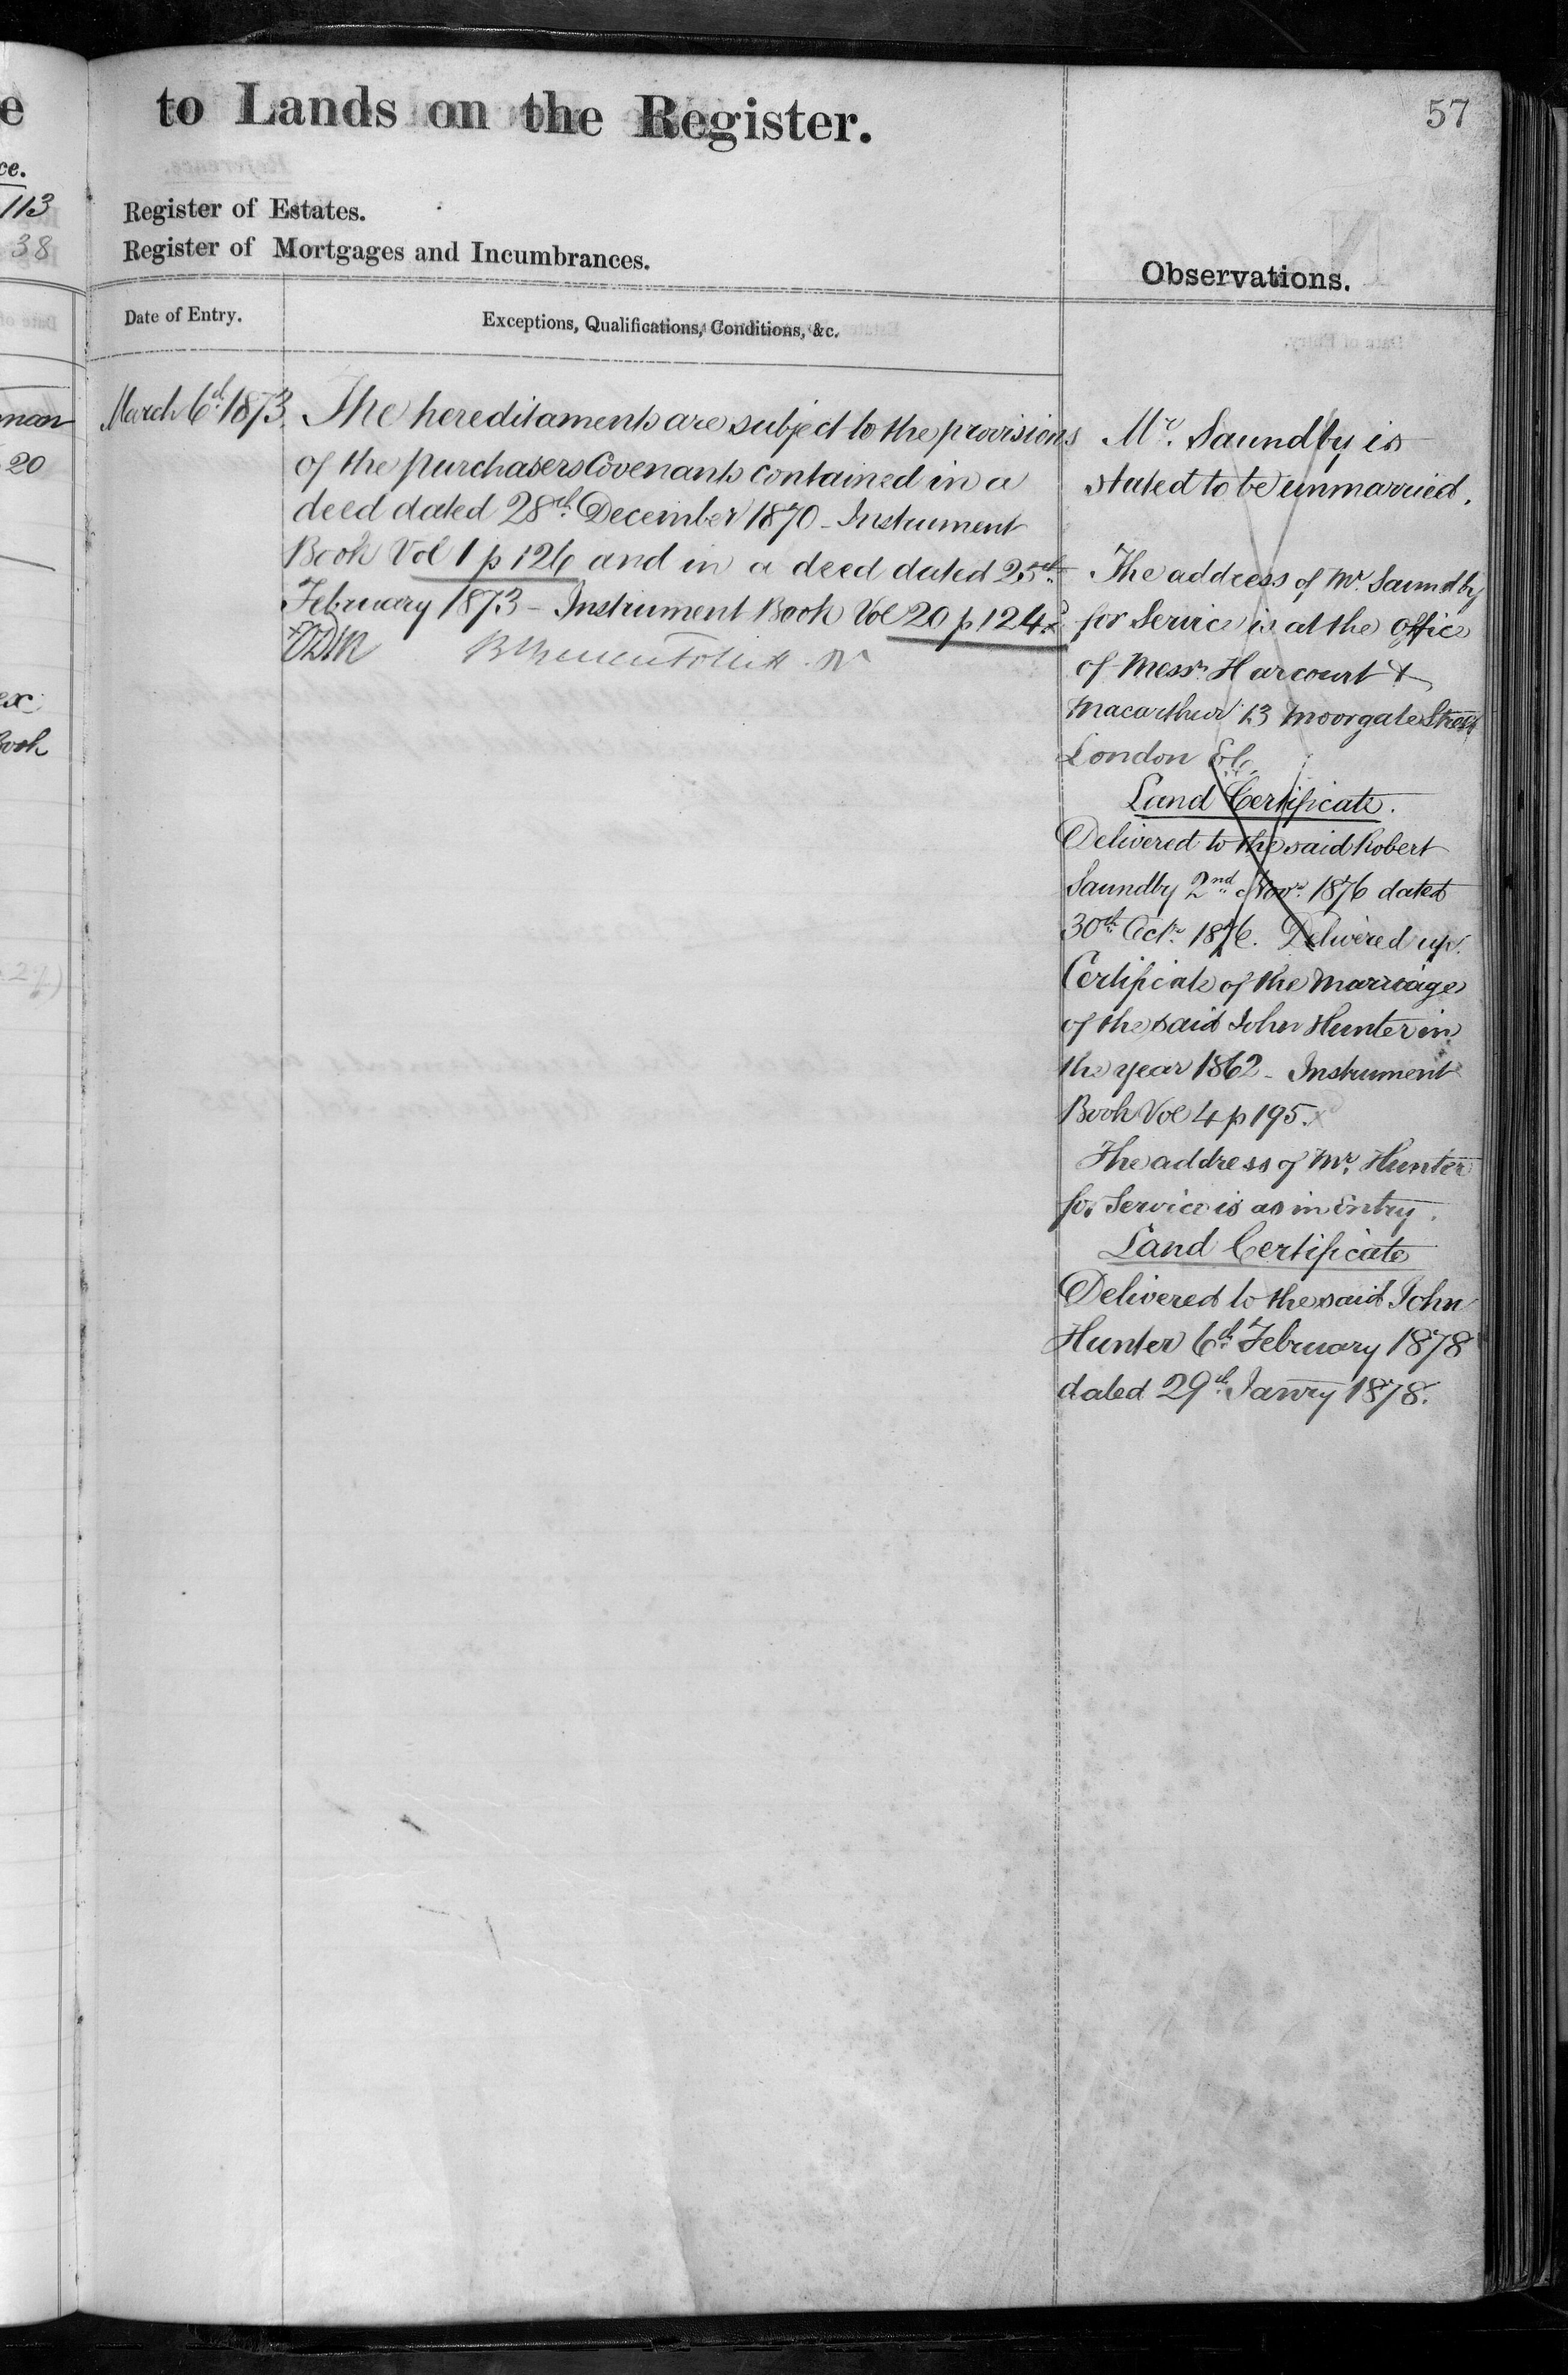 e
ce.
113
38
man
20
ex
Book
to Lands on the Register.
57
Register of Estates.
Register of Mortgages and Incumbrances.
Observations.
Date of Entry.
Exceptions, Qualifications, Conditions, &c.
March 6th 1873.
The hereditaments are subject to the provisions
of the purchasers Covenants contained in a
deed dated 28th December 1870 - Instrument
Book Vol 1 p 126 and in a deed dated 25th
February 1873 - Instrument Book Vol 20 p 124.
Mr. Saundby is
stated to be unmarried.
The address of Mr. Saundby
for Service is at the office
of Messrs. Harcourt &
Macarthur 13 Moorgate Street
London E.C.
Land Certificate.
Delivered to the said Robert
Saundby 2nd Novr. 1876 dated
30th Octr. 1876. Delivered up.
Certificate of the Marriage
of the said John Hunter in
the year 1862 - Instrument
Book Vol 4 p 195.
The address of Mr. Hunter
for Service is as in Entry.
Land Certificate
Delivered to the said John
Hunter 6th February 1878
dated 29th Janry 1878.